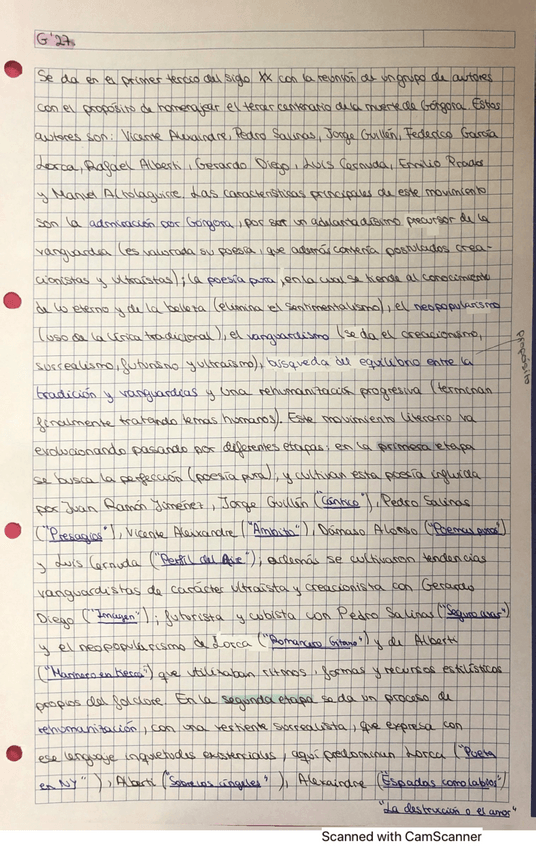 G'27
Se da en el primer tercio del siglo XX con la reunión de un grupo de autores
con el propósito de homenajear el tercer centenario de la muerte de Góngora. Estos
autores son: Vicente Aleixandre, Pedro Salinas, Jorge Guillén, Federico García
Lorca, Rafael Alberti, Gerardo Diego, Luis Cernuda, Emilio Prados
y Manuel Altolaguirre. Las características principales de este movimiento
son la admiración por Góngora, por ser un adelantadísimo precursor de la
vanguardia (es valorada su poesía, que además contenía postulados crea-
cionistas y ultraístas); la poesía pura, en la cual se tiende al conocimiento
de lo eterno y de la belleza (elimina el sentimentalismo), el neopopularismo
(uso de la lírica tradicional), el vanguardismo (se da el creacionismo,
surrealismo, futurismo y ultraísmo), búsqueda del equilibrio entre la
tradición y vanguardias y una rehumanización progresiva (terminan
finalmente tratando temas humanos). Este movimiento literario va
evolucionando pasando por diferentes etapas: en la primera etapa
se busca la perfección (poesía pura), y cultivan esta poesía influida
por Juan Ramón Jiménez, Jorge Guillén ("Cántico"), Pedro Salinas
("Presagios"), Vicente Aleixandre ("Ámbito"), Dámaso Alonso ("Poemas puros")
y Luis Cernuda ("Perfil del Aire"), además se cultivaron tendencias
vanguardistas de carácter ultraísta y creacionista con Gerardo
Diego ("Imagen"); futurista y cubista con Pedro Salinas ("Seguro azar")
y el neopopularismo de Lorca ("Romancero Gitano") y de Alberti
("Marinero en tierra") que utilizaban ritmos, formas y recursos estilísticos
propios del folclore. En la segunda etapa se da un proceso de
rehumanización, con una vertiente surrealista, que expresa con
ese lenguaje inquietudes existenciales, aquí predominan Lorca ("Poeta
en NY"), Alberti ("Sobre los ángeles"), Aleixandre ("Espadas como labios")
"La destrucción o el amor"
Scanned with CamScanner